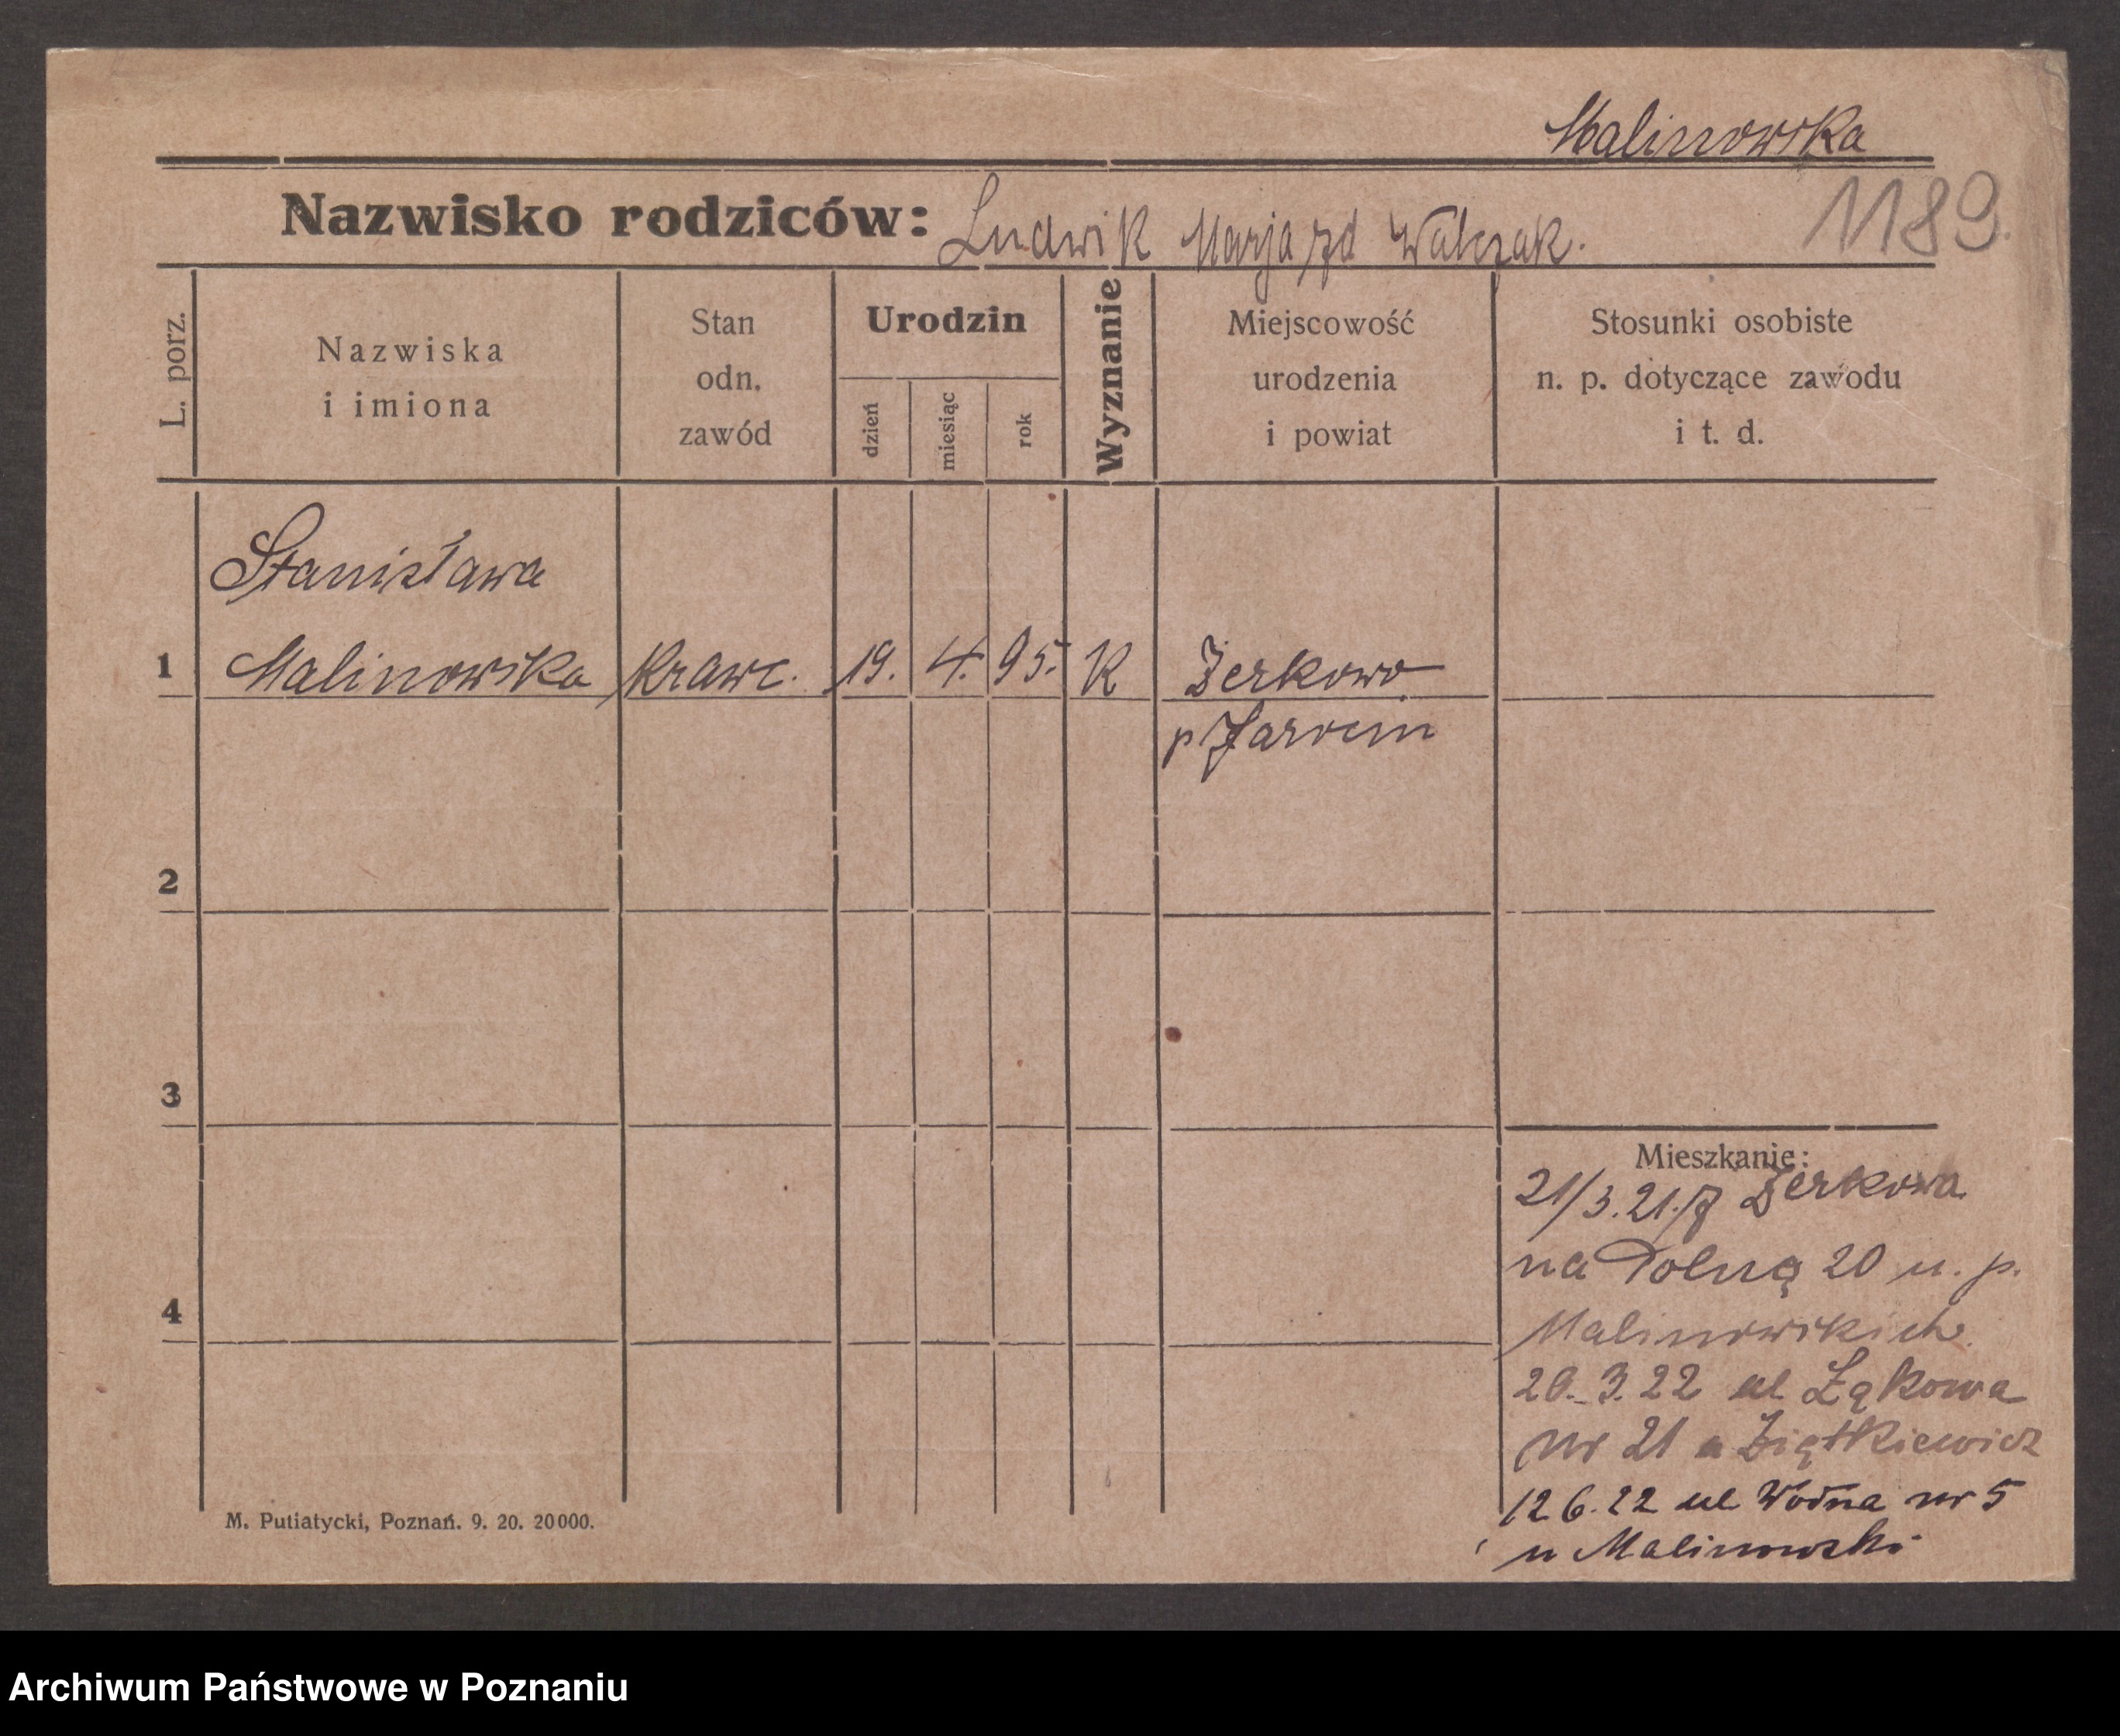 Malinowska
1189.
Nazwisko rodziców: Ludwik Marja zd Walczak.
L. porz.
Nazwiska
i imiona
Stan
odn.
zawód
Urodzin
dzień
miesiąc
rok
Wyznanie
Miejscowość
urodzenia
i powiat
Stosunki osobiste
n. p. dotyczące zawodu
i t. d.
Stanisława
1 Malinowska krawc. 19. 4. 95. K Żerkowo
p Jarocin
2
3
4
Mieszkanie:
21/3.21. z Żerkowa
na Dolną 20 u. p.
Malinowskich
20.3.22 ul Łąkowa
nr 21 u Ziętkiewicz
12 6.22 ul Wodna nr 5
u Malinowski
M. Putiatycki, Poznań. 9. 20. 20000.
Archiwum Państwowe w Poznaniu